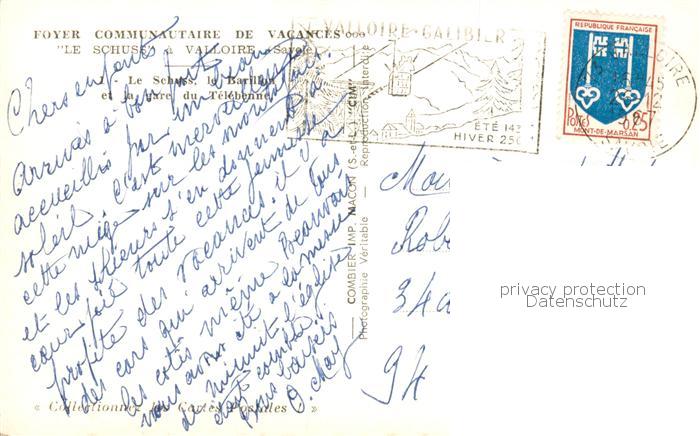 FOYER COMMUNAUTAIRE DE VACANCES
"LE SCHUSS" à VALLOIRE (Savoie)
1. - Le Schuss, le Barillon
et la gare du Télébenne
Chers enfants
Arrivés à bon port
accueillis par un beau
soleil. C'est merveilleux
cette neige sur les montagnes
et les skieurs s'en donnent à
cœur joie toute cette jeunesse
profite des vacances. il y a
des cars qui arrivent de tous
les cotés même Beauvais
nous avons été à la messe
de minuit l'église
était comble
Bons baisers
« Collectionnez les Cartes Postales »
COMBIER IMP. MACON (S.-et-L.) "CIM"
Photographie Véritable - Reproduction Interdite
VALLOIRE-GALIBIER
ÉTÉ 143
HIVER 250
REPUBLIQUE FRANÇAISE
Postes
0,25
MONT-DE-MARSAN
SAVOIE
Rob
34a
94
privacy protection
Datenschutz